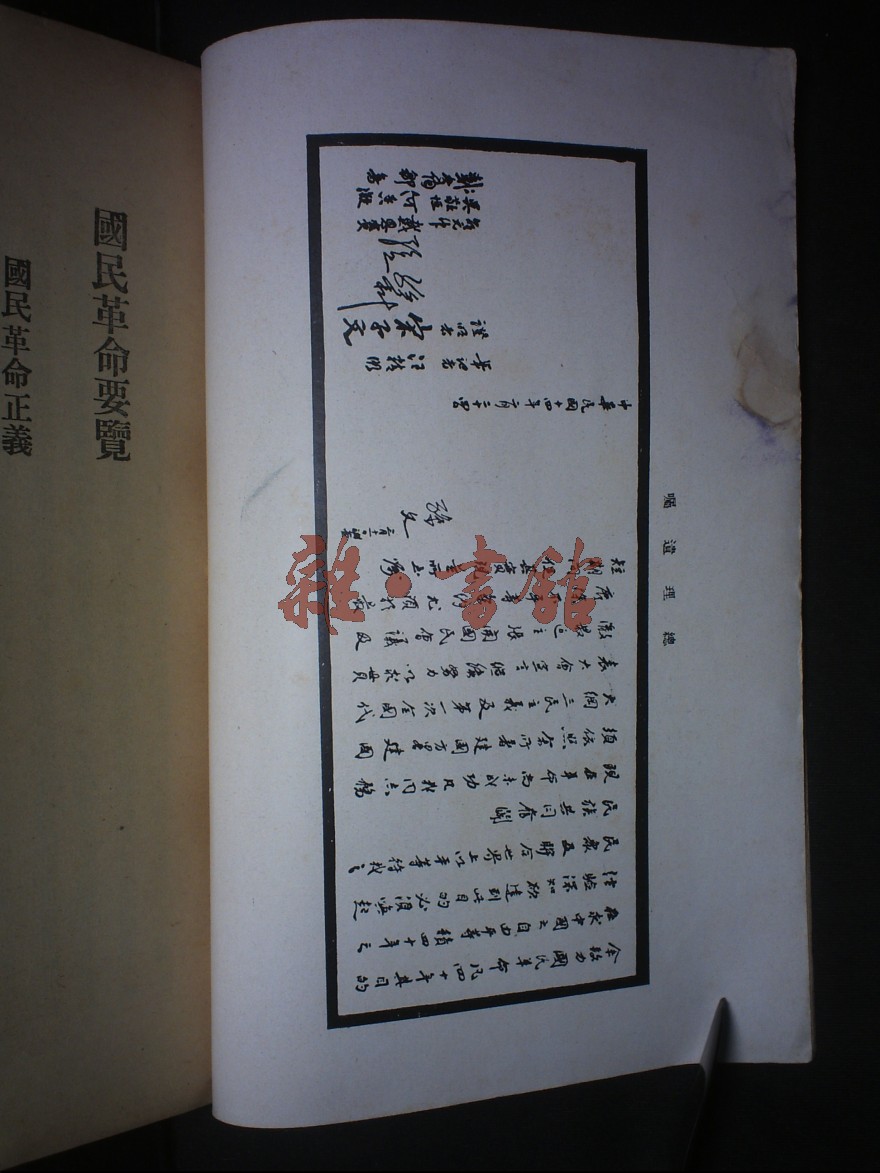 國民革命要覽
國民革命正義
囑遺理總
余致力國民革命凡四十年其目的
在求中國之自由平等積四十年之
經驗深知欲達到此目的必須喚起
民衆及聯合世界上以平等待我之
民族共同奮鬥
現在革命尚未成功凡我同志務
須依照余所著建國方略建國
大綱三民主義及第一次全國代
表大會宣言繼續努力以求貫
徹最近主張開國民會議及
廢除不平等條約尤須於最
短期間促其實現是所至囑
孫文
中華民國十四年二月二十四日
筆記者 汪精衛
證明者 宋子文
孫科
戴恩賽
吳敬恆 何香凝
戴季陶 鄒魯
雜·書館